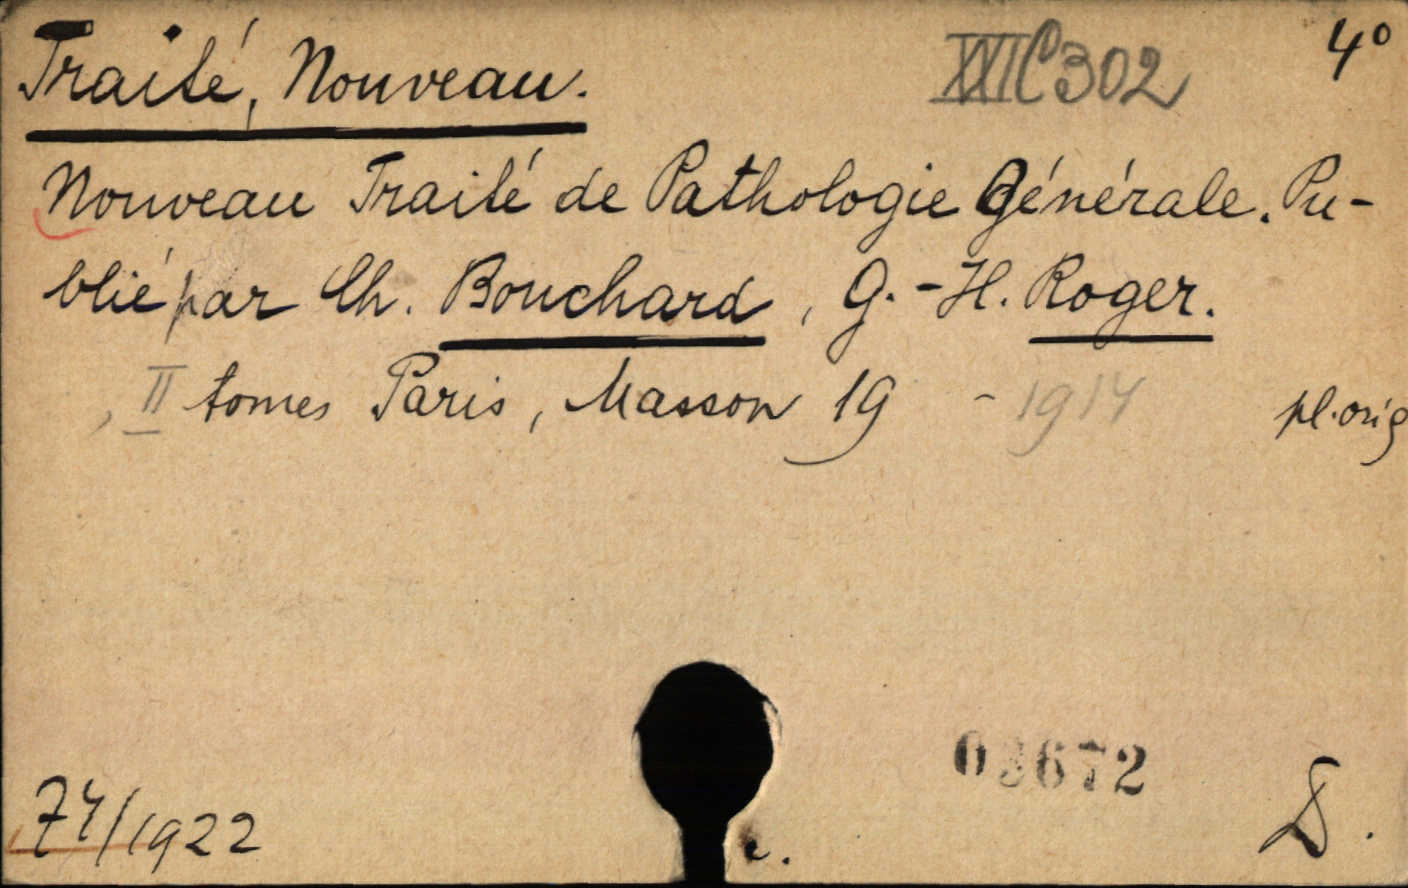 Traité, Nouveau. XXIC302 4°
Nouveau Traité de Pathologie Générale. Pu-
blié par Ch. Bouchard, G.-H. Roger.
, II tomes Paris, Masson 19 - 1914 pl. orig
03672
74/1922 c. D.